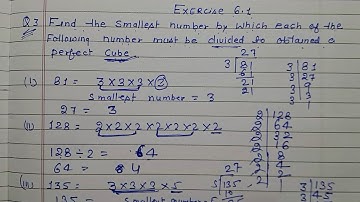 Exercise 6.1
Q3 Find the smallest number by which each of the
following number must be divided to obtained a
perfect Cube.
(i) 81 = 3×3×3×3
smallest number = 3
27 = 3
27
3 81
6
21
21
3 81
3 27
3 9
3 3
1
(ii) 128 = 2×2×2×2×2×2×2
128÷2 = 64
64 = 4
2 128
2 64
2 32
2 16
2 8
2 4
2 2
1
(iii) 135 = 3×3×3×5
135 =
smallest number
27
5 135
3 135
3 45